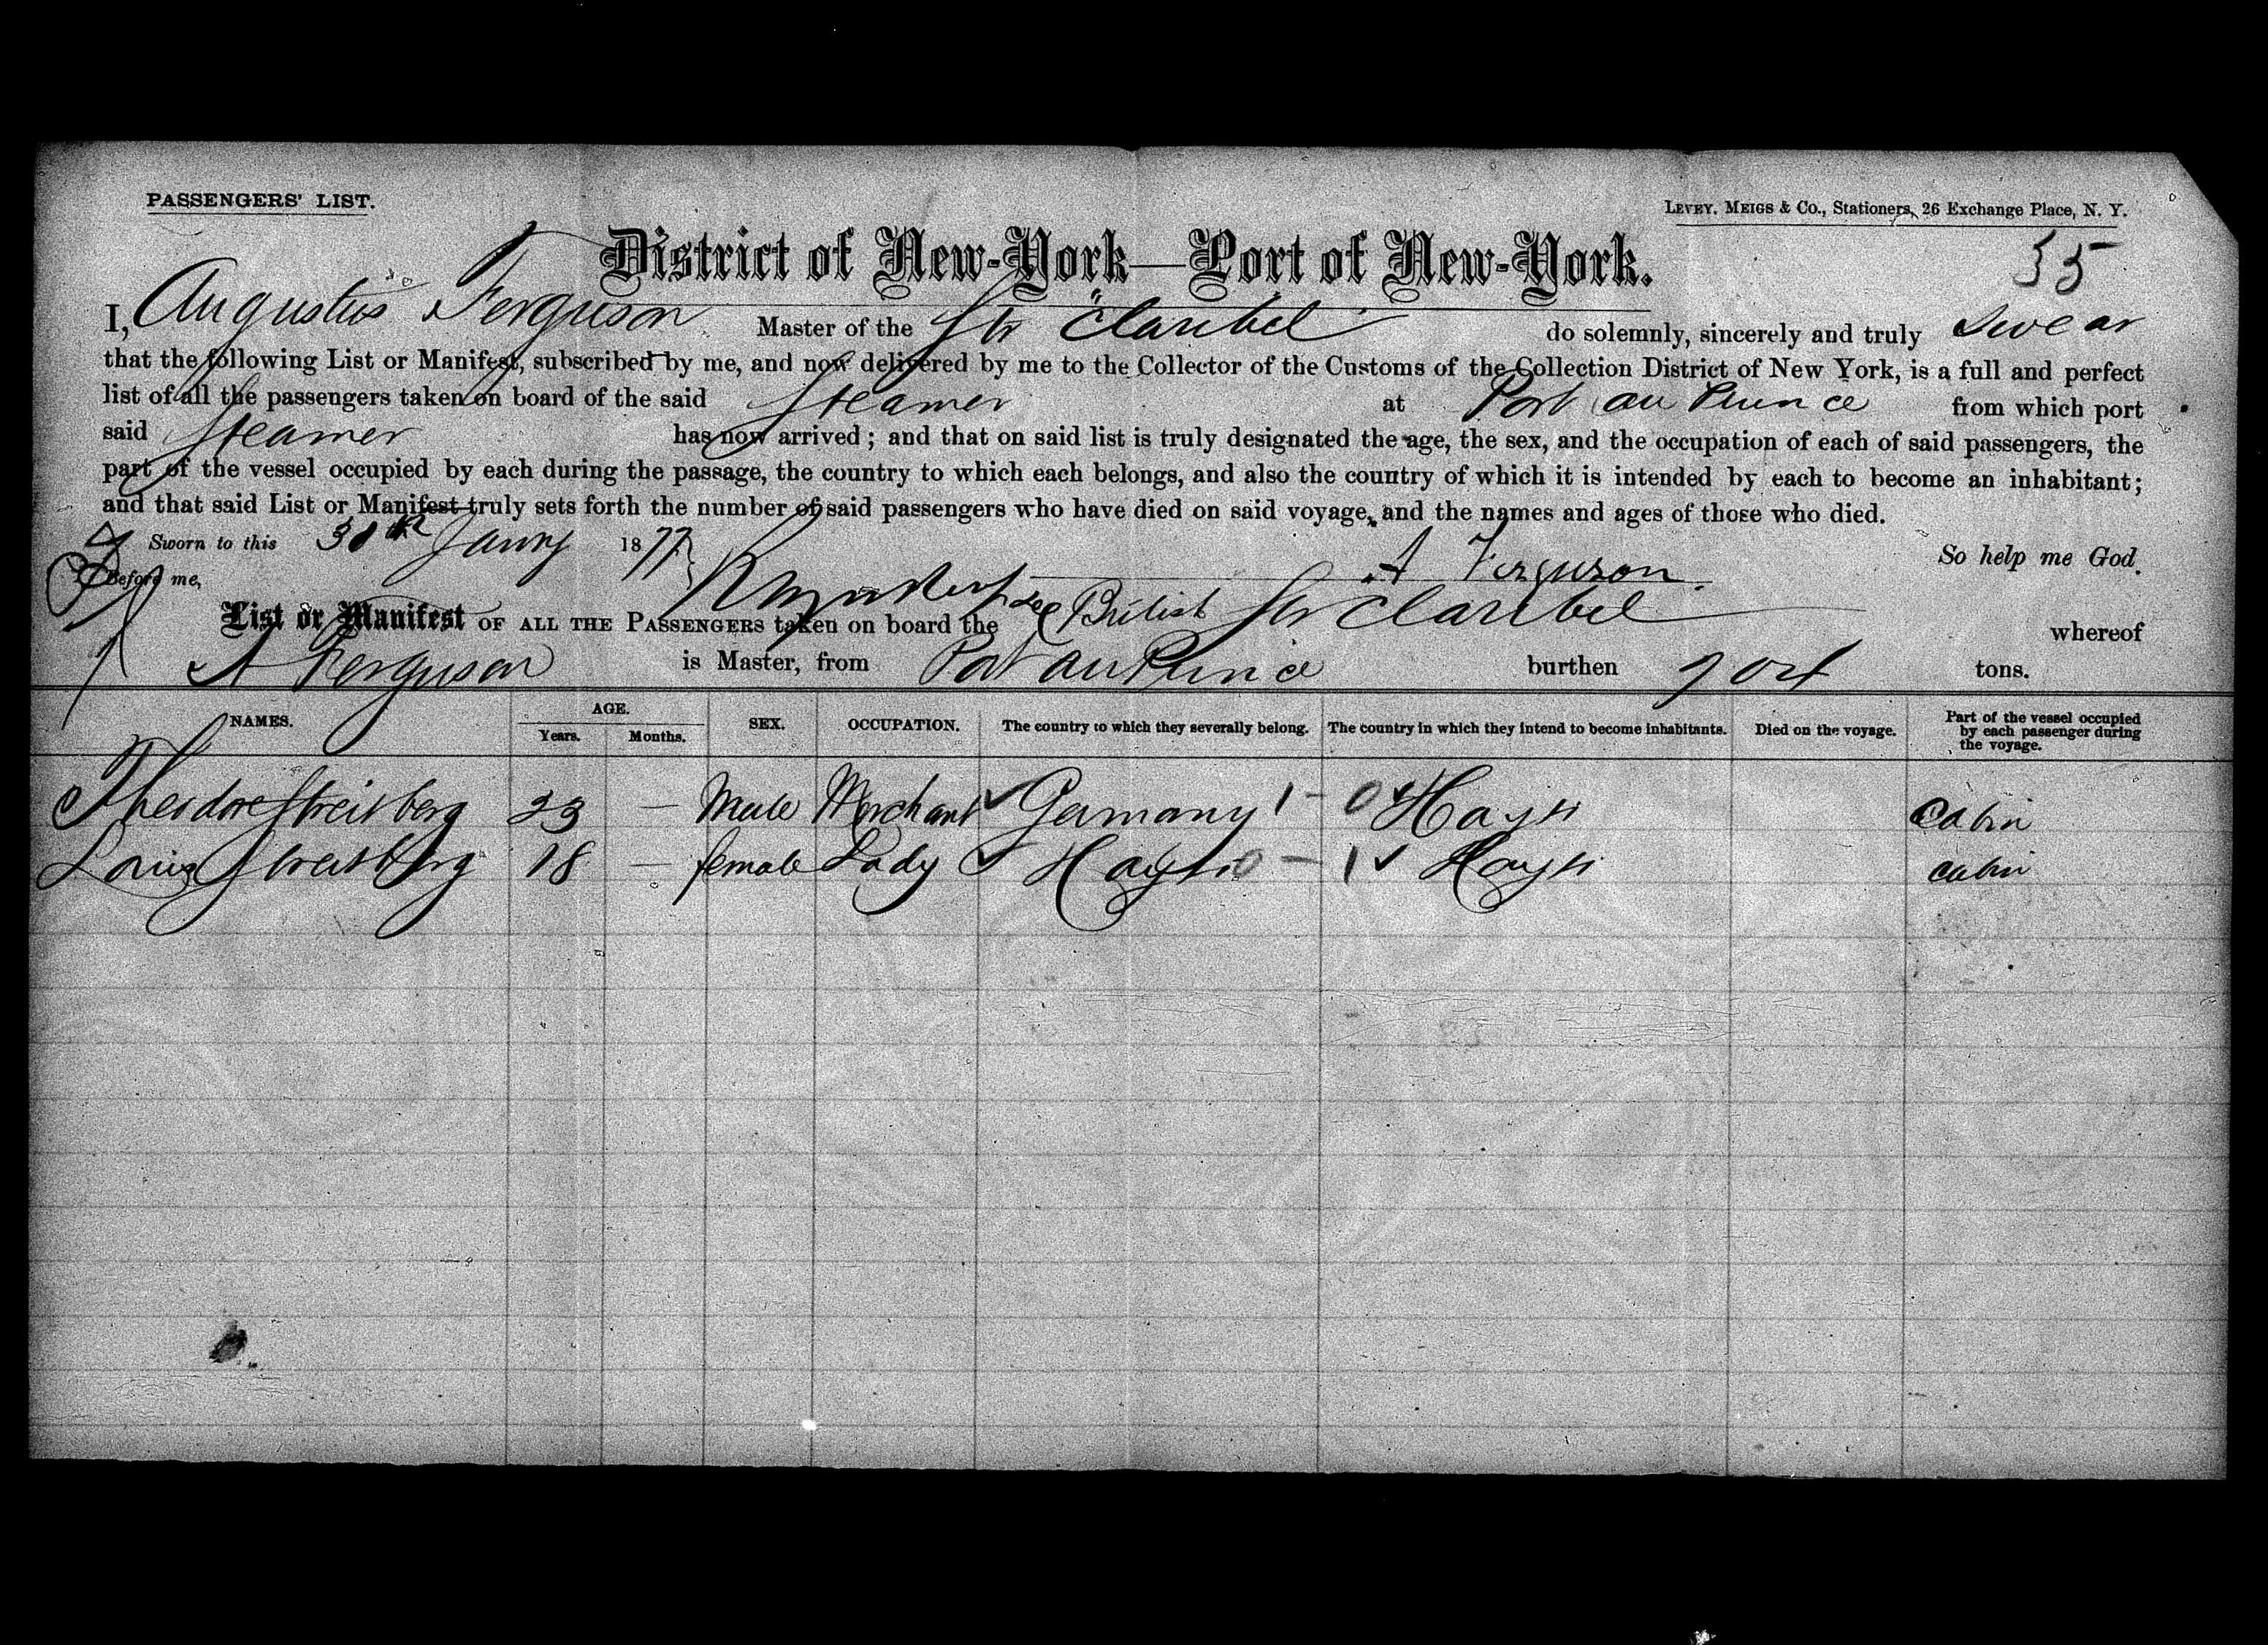 PASSENGERS' LIST.
LEVEY, MEIGS & Co., Stationers, 26 Exchange Place, N. Y.
35
District of New-York—Port of New-York.
I, Augustus Ferguson Master of the Str "Claribel do solemnly, sincerely and truly Swear
that the following List or Manifest, subscribed by me, and now delivered by me to the Collector of the Customs of the Collection District of New York, is a full and perfect
list of all the passengers taken on board of the said Steamer at Port au Prince from which port
said Steamer has now arrived; and that on said list is truly designated the age, the sex, and the occupation of each of said passengers, the
part of the vessel occupied by each during the passage, the country to which each belongs, and also the country of which it is intended by each to become an inhabitant;
and that said List or Manifest truly sets forth the number of said passengers who have died on said voyage, and the names and ages of those who died.
Sworn to this 30th Janny 1877 So help me God.
Before me, A Ferguson
List or Manifest OF ALL THE PASSENGERS taken on board the British Str Claribel whereof
A Ferguson is Master, from Port au Prince burthen tons.
NAMES. AGE. Years. Months. SEX. OCCUPATION. The country to which they severally belong. The country in which they intend to become inhabitants. Died on the voyage. Part of the vessel occupied by each passenger during the voyage.
Theodore Streitberg 23 — Male Merchant ✓ Germany 1 - 0 ✓ Hayti Cabin
Streitberg 18 — female Lady ✓ Hayti 0 — 1 ✓ Hayti cabin